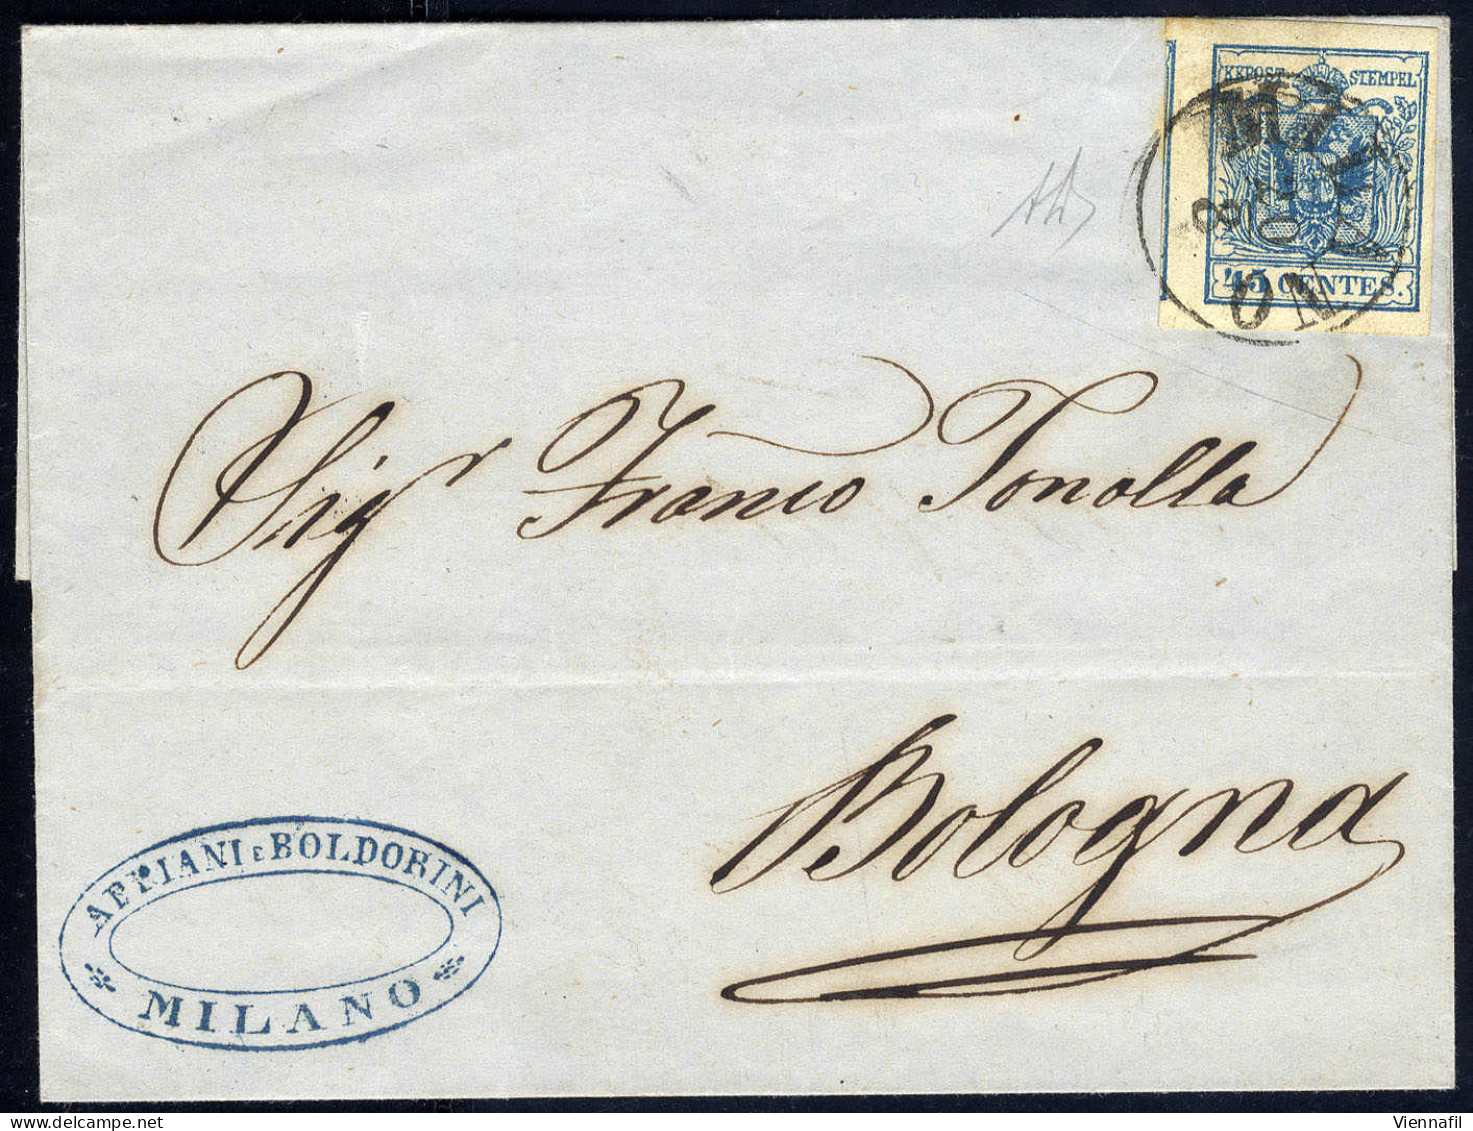 KKPOST-STEMPEL
45 CENTES.
MILANO
8
Sig.r Franco Tonolla
Bologna
APPIANI E BOLDORINI
MILANO
Viennafil